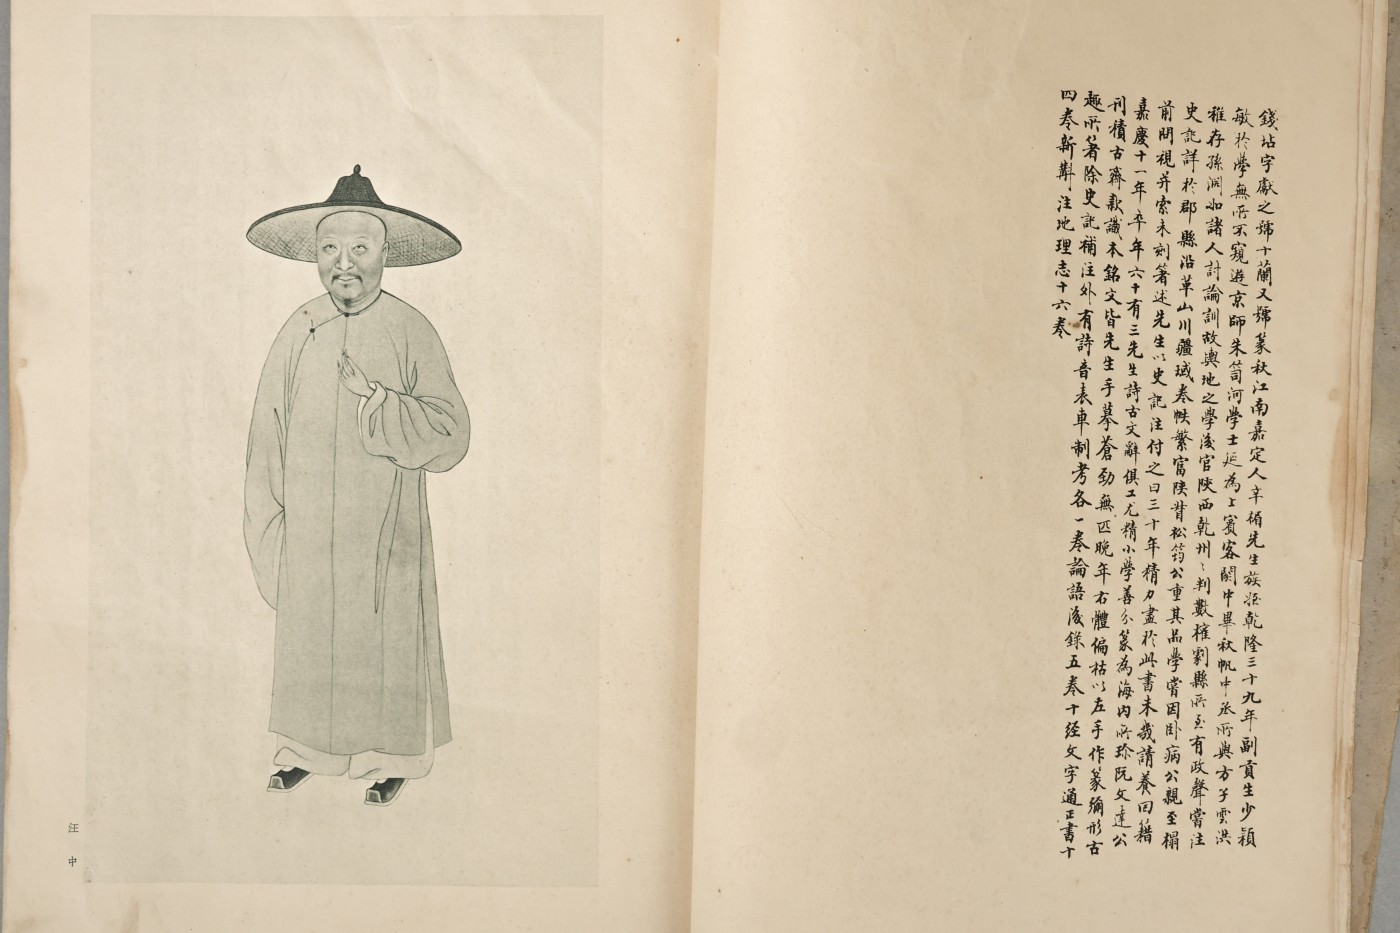 錢坫字獻之號十蘭又號篆秋江南嘉定人辛楣先生族姪乾隆三十九年副貢生少穎
敏於學無所不窺遊京師朱笥河學士延為上賓客關中畢秋帆中丞所與方子雲洪
稚存孫淵如諸人討論訓故輿地之學後官陝西乾州〻判數權劇縣所至有政聲嘗注
史記詳於郡縣沿革山川疆域卷帙繁富陝督松筠公重其品學嘗因卧病公親至榻
前問視并索未刻著述先生以史記注付之曰三十年精力盡於此書未幾請養回籍
嘉慶十一年卒年六十有三先生詩古文辭俱工尤精小學善分篆為海内所珍阮文達公
刊積古齋款識本銘文皆先生手摹蒼勁無匹晚年右體偏枯以左手作篆彌形古
趣所箸除史記補注外有詩音表車制考各一卷論語後錄五卷十经文字通正書十
四卷新斠注地理志十六卷
汪中